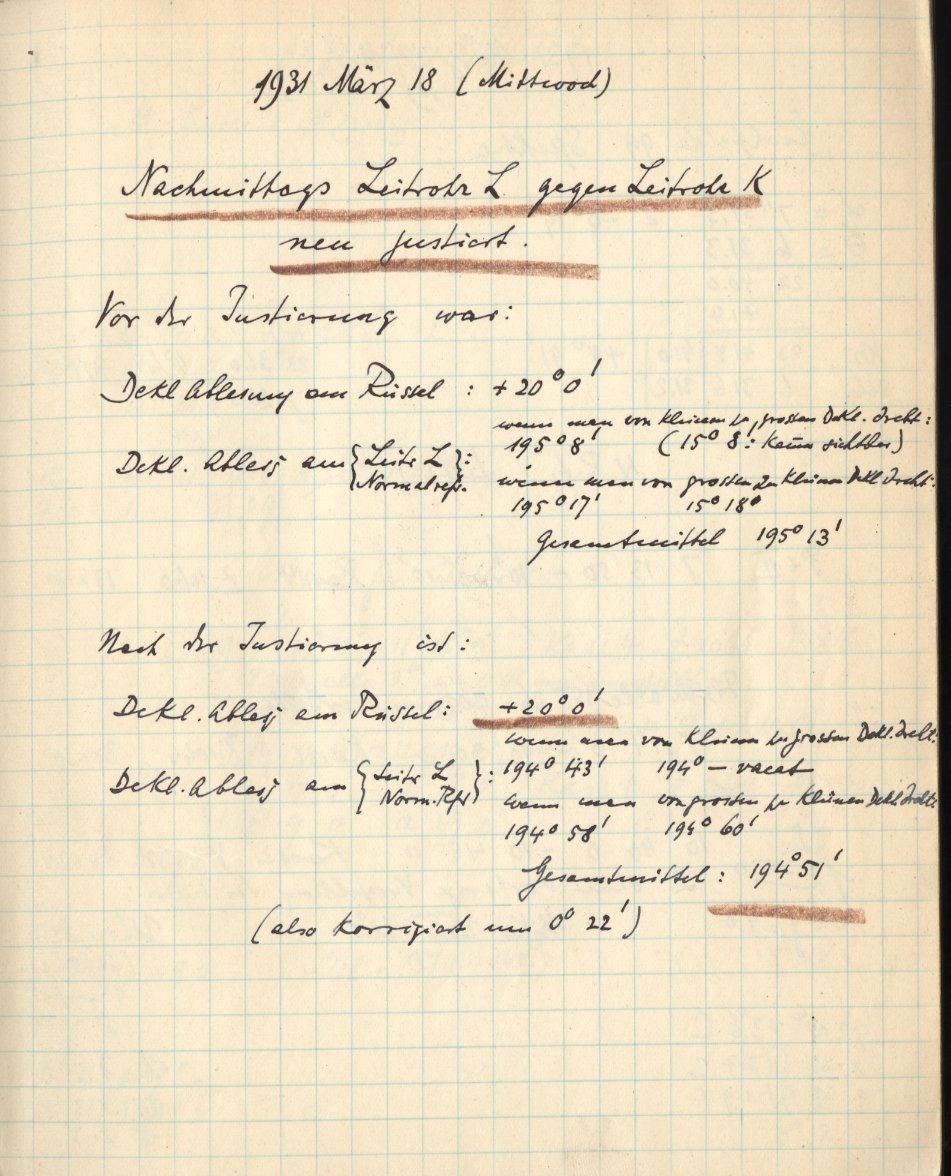 1931 März 18 (Mittwoch)
Nachmittags Leitrohr L gegen Leitrohr K
neu justiert.
Vor der Justierung war:
Dekl Ablesung am Rüssel : +20° 0'
wenn man von kleinen zu grossen Dekl. dreht:
195° 8' (15° 8': kaum sichtbar)
Dekl. Ablesg am {Leitr L
Normalrefr.}:
wenn man von grossen zu kleinen Dekl dreht:
195° 17' 15° 18'
Gesamtmittel 195° 13'
Nach der Justierung ist:
Dekl. Ablesg am Rüssel: +20° 0'
wenn man von kleinen zu grossen Dekl. dreht:
194° 43' 194° — vacat
Dekl. Ablesg am {Leitr L
Norm. Refr}:
wenn man von grossen zu kleinen Dekl. dreht:
194° 58' 194° 60'
Gesamtmittel: 194° 51'
(also korrigiert um 0° 22')